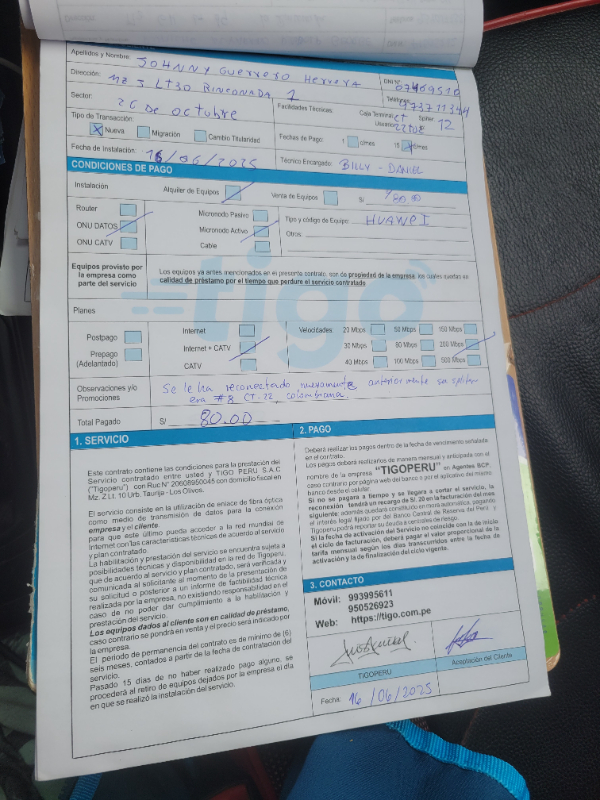 Apellidos y Nombre: JOHNNY Guerrero Herrera
DNI N° 07469510
Dirección: Mz J LT30 RINCONADA 2
Teléfono: 973711344
Sector: 26 De octubre
Facilidades Técnicas: Caja Terminal: CT Splitter 12
Tipo de Transacción:
Nueva Migración Cambio Titularidad
Fechas de Pago: 1 c/mes 16 c/mes
Fecha de Instalación: 16/06/2025
Técnico Encargado: BILLY - DANIEL
CONDICIONES DE PAGO
Instalación Alquiler de Equipos Venta de Equipos S/ 80.00
Router Micronodo Pasivo Tipo y código de Equipo: HUAWEI
ONU DATOS Micronodo Activo Otros:
ONU CATV Cable
Equipos provisto por la empresa como parte del servicio
Los equipos ya antes mencionados en el presente contrato, son de propiedad de la empresa, los cuales quedan en calidad de préstamo por el tiempo que perdure el servicio contratado
tigo
Planes
Postpago Internet Velocidades: 20 Mbps 50 Mbps 150 Mbps
Prepago (Adelantado) Internet + CATV 30 Mbps 80 Mbps 200 Mbps
CATV 40 Mbps 100 Mbps 500 Mbps
Observaciones y/o Promociones
Se le ha reconectado nuevamente anteriormente su spliter
era #8 CT.22 colombiana.
Total Pagado S/ 80.00
1. SERVICIO
Este contrato contiene las condiciones para la prestación del
Servicio contratado entre usted y TIGO PERU S.A.C
("Tigoperu") con Ruc N° 20608950045 con domicilio fiscal en
Mz. Z Lt. 10 Urb. Taurija - Los Olivos.
El servicio consiste en la utilización de enlace de fibra óptica
como medio de transmisión de datos para la conexión
empresa y el cliente.
para que este último pueda acceder a la red mundial de
Internet con las características técnicas de acuerdo al servicio
y plan contratado.
La habilitación y prestación del servicio se encuentra sujeta a
posibilidades técnicas y disponibilidad en la red de Tigoperu,
que de acuerdo al servicio y plan contratado, será verificada y
comunicada al solicitante al momento de la presentación de
su solicitud o posterior a un informe de factibilidad técnica
realizada por la empresa, no existiendo responsabilidad en el
caso de no poder dar cumplimiento a la habilitación y
prestación del servicio.
Los equipos dados al cliente son en calidad de préstamo,
caso contrario se pondrá en venta y el precio será indicado por
la empresa.
El período de permanencia del contrato es de mínimo de (6)
seis meses, contados a partir de la fecha de contratación del
servicio.
Pasado 15 días de no haber realizado pago alguno, se
procederá al retiro de equipos dejados por la empresa el día
en que se realizó la instalación del servicio.
2. PAGO
Deberá realizar los pagos dentro de la fecha de vencimiento señalada
en el contrato.
Los pagos deberá realizarlos de manera mensual y anticipada con el
nombre de la empresa "TIGOPERU" en Agentes BCP,
caso contrario por página web del banco o por el aplicativo del mismo
banco desde el celular.
Si no se pagara a tiempo y se llegara a cortar el servicio, la
reconexión tendrá un recargo de S/. 20 en la facturación del mes
siguiente; además quedará constituido en mora automática, pagando
el interés legal fijado por del Banco Central de Reserva del Perú, y
Tigoperu podrá reportar su deuda a centrales de riesgo.
Si la fecha de activación del Servicio no coincide con la de inicio
el ciclo de facturación, deberá pagar el valor proporcional de la
tarifa mensual según los días transcurridos entre la fecha de
activación y la de finalización del ciclo vigente.
3. CONTACTO
Móvil: 993995611
950526923
Web: https://tigo.com.pe
TIGOPERU
Aceptación del Cliente
Fecha: 16/06/2025